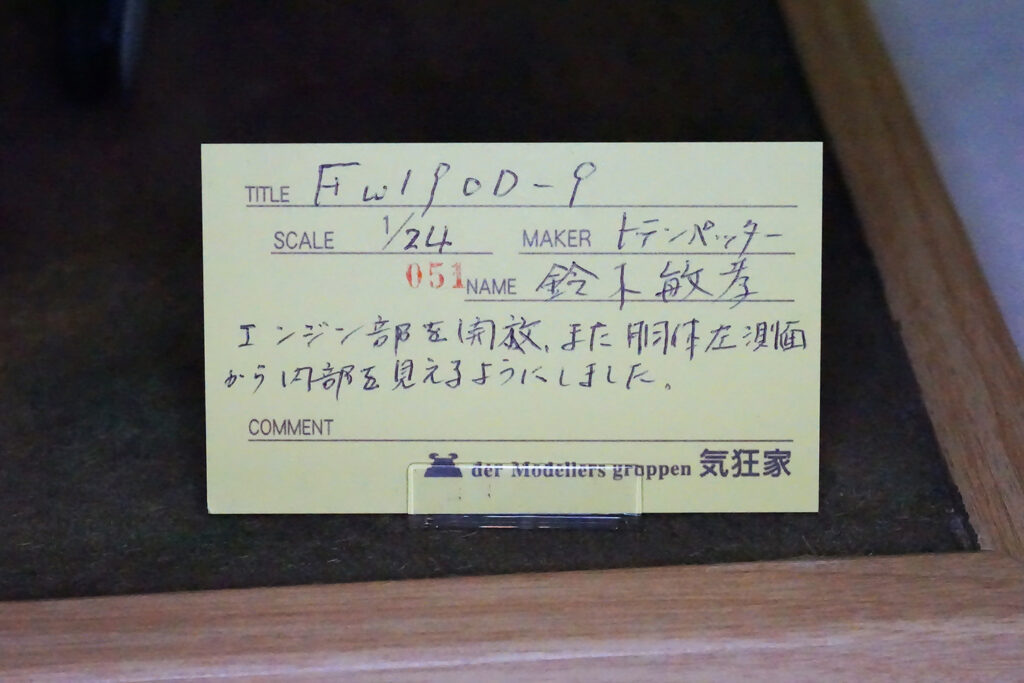 TITLE Fw190D-9
SCALE 1/24 MAKER トランペッター
051 NAME 鈴木敏孝
エンジン部を開放、また胴体左側面
から内部を見えるようにしました。
COMMENT
der Modellers gruppen 気狂家